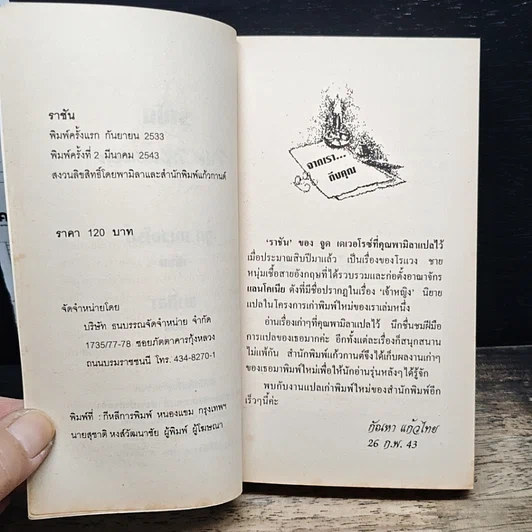 ราชัน
พิมพ์ครั้งแรก กันยายน 2533
พิมพ์ครั้งที่ 2 มีนาคม 2543
สงวนลิขสิทธิ์โดยพามิลาและสำนักพิมพ์แก้วกานต์
ราคา 120 บาท
จัดจำหน่ายโดย
บริษัท ธนบรรณจัดจำหน่าย จำกัด
1735/77-78 ซอยภัตตาคารกุ้งหลวง
ถนนบรมราชชนนี โทร. 434-8270-1
พิมพ์ที่ : กีหลีการพิมพ์ หนองแขม กรุงเทพฯ
นายสุชาติ หงส์วัฒนาชัย ผู้พิมพ์ ผู้โฆษณา
จากเรา...
ถึงคุณ
'ราชัน' ของ จูด เดเวอโรซ์ที่คุณพามิลาแปลไว้
เมื่อประมาณสิบปีมาแล้ว เป็นเรื่องของโรแวง ชาย
หนุ่มเชื้อสายอังกฤษที่ได้รวบรวมและก่อตั้งอาณาจักร
แลนโคเนีย ดังที่มีชื่อปรากฏในเรื่อง 'เจ้าหญิง' นิยาย
แปลในโครงการเก่าพิมพ์ใหม่ของเราเล่มหนึ่ง
อ่านเรื่องเก่าๆที่คุณพามิลาแปลไว้ นึกชื่นชมฝีมือ
การแปลของเธอมากค่ะ อีกทั้งแต่ละเรื่องก็สนุกสนาน
ไม่แพ้กัน สำนักพิมพ์แก้วกานต์จึงได้เก็บผลงานเก่าๆ
ของเธอมาพิมพ์ใหม่เพื่อให้นักอ่านรุ่นหลังๆได้รู้จัก
พบกับงานแปลเก่าพิมพ์ใหม่ของสำนักพิมพ์อีก
เร็วๆนี้ค่ะ
กัณหา แก้วไทย
26 ก.พ. 43